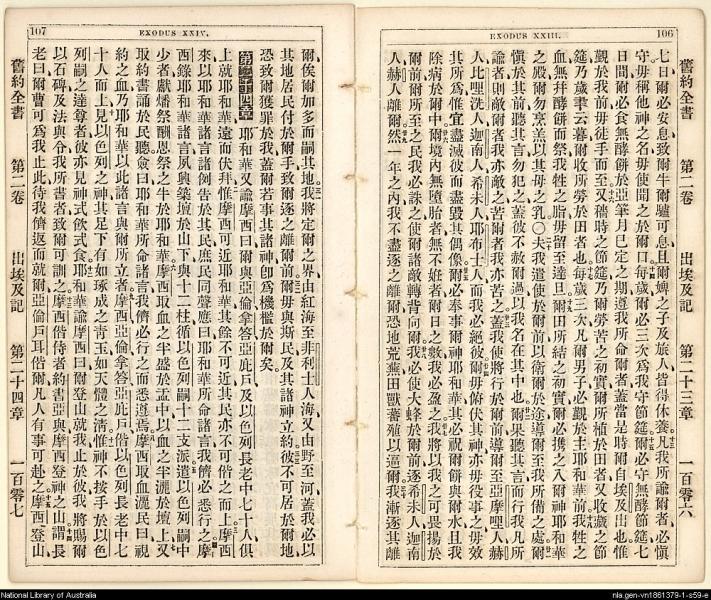 106
EXODUS XXIII.
舊約全書 第二卷 出埃及記 第二十三章 一百零六
七日爾必安息致爾牛爾驢可息且爾婢之子及旅人皆得休養凡我所諭爾者必愼
守毋稱他神之名毋使聞之於爾口每歲爾必三次爲我守節筵爾必守無酵節筵七
日間爾必食無酵餅於亞筆月已定之期遵我所命爾者蓋當是時爾自埃及出也惟
覿於我前毋徒手而至又穡時之節筵乃爾勞苦之初實爾所植於田者又收歛之節
筵乃歲事云暮爾收所勞於田者也每歲三次凡爾男子必覿於主耶和華前我牲之
血無幷酵餅而祭我牲之脂毋留至達旦爾田所結之初實爾必攜之入爾神耶和華
之殿爾勿烹羔以其母之乳〇夫我遣使於爾前以衛爾於途導爾至我所備之處爾
愼於其前聽其言勿犯之蓋彼不赦爾過以我名在其中也爾果聽其言而行我凡所
諭者則敵爾者我亦敵之苦爾者我亦苦之蓋我使將行於爾前導爾至亞摩哩人赫
人比哩洗人迦南人希未人耶布士人而我必絕彼爾毋俯伏其神亦毋役事之毋效
其所爲惟宜盡滅彼而盡毀其偶像爾必奉事爾神耶和華其必祝爾餅與爾水且我
除病於爾中爾境內無墮胎者無不姙者爾日之數我必盈之我將以我之可畏揚於
爾前爾所至之民我必誅之使爾諸敵轉背向爾我必使大蜂於爾前逐希未人迦南
人赫人離爾然一年之內我不盡逐之離爾恐地荒蕪田獸蕃殖以逼爾我漸逐其離
107
EXODUS XXIV.
爾俟爾加多而嗣其地我將定爾之界由紅海至非利士人海又由野至河蓋我必以
其地居民付於爾手致爾逐之離爾前爾毋與斯民及其諸神立約彼不可居於爾地
恐致爾獲罪於我蓋爾若事其諸神卽爲機檻於爾矣
第二十四章 耶和華又諭摩西曰爾與亞倫拿答亞庇戶及以色列長老中七十人俱
上就耶和華遠而伏拜惟摩西可近耶和華其餘不可近其民亦不可偕之而上摩西
來以耶和華諸言諸例告於其民庶民同聲應曰耶和華所命諸言我儕必悉行之摩
西錄耶和華諸言夙興築壇於山下與十二柱循以色列嗣十二支派遣以色列嗣中
少者獻燔祭酬恩祭之牛於耶和華摩西取血之半盛於盂中以血之半灑於壇上又
取約書誦於民聽僉曰耶和華所命諸言我儕必行之而悉遵焉摩西取血灑民曰視
約之血乃耶和華以此諸言與爾所立者摩西亞倫拿答亞庇戶偕以色列長老中七
十人而上見以色列之神其足下有如琢成之靑玉如天體之淸惟神不按手於以色
列嗣之達尊者彼亦見神式飲式食耶和華諭摩西曰爾登山就我止於彼我將賜爾
以石碑及法與令我所書者致爾可訓之摩西偕侍者約書亞與摩西登神之山謂長
老曰爾曹可爲我止此待我儕返而就爾亞倫戶耳偕爾凡人有事可赴之摩西登山
舊約全書 第二卷 出埃及記 第二十四章 一百零七
National Library of Australia
nla.gen-vn1861379-1-s59-e